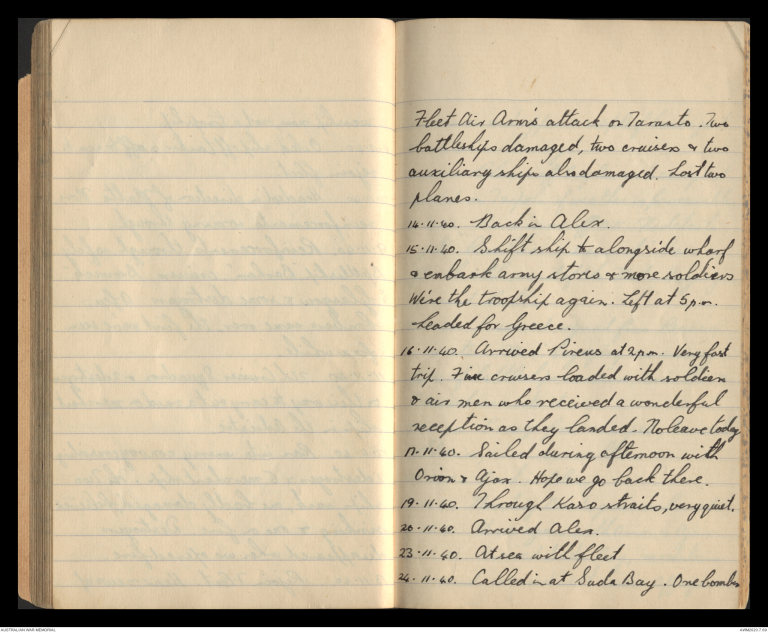 Fleet Air Arm's attack on Taranto. Two
battleships damaged, two cruisers & two
auxiliary ships also damaged. Lost two
planes.
14.11.40. Back in Alex.
15.11.40. Shift ship to alongside wharf
& embark army stores & more soldiers
We're the troopship again. Left at 5 p.m.
headed for Greece.
16.11.40. Arrived Pireus at 2 p.m. Very fast
trip. Five cruisers loaded with soldiers
& air men who received a wonderful
reception as they landed. No leave today
17.11.40. Sailed during afternoon with
Orion & Ajax. Hope we go back there.
19.11.40. Through Kaso straits, very quiet.
20.11.40. Arrived Alex.
23.11.40. At sea with fleet
24.11.40. Called in at Suda Bay. One bomber
AUSTRALIAN WAR MEMORIAL